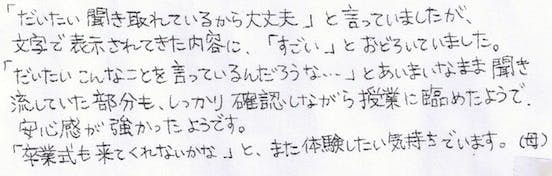 「だいたい聞き取れているから大丈夫」と言っていましたが、
文字で表示されてきた内容に、「すごい」とおどろいていました。
「だいたいこんなことを言っているんだろうな…」とあいまいなまま聞き
流していた部分も、しっかり確認しながら授業に臨めたようで、
安心感が強かったようです。
「卒業式も来てくれないかな」と、また体験したい気持ちでいます。(母)